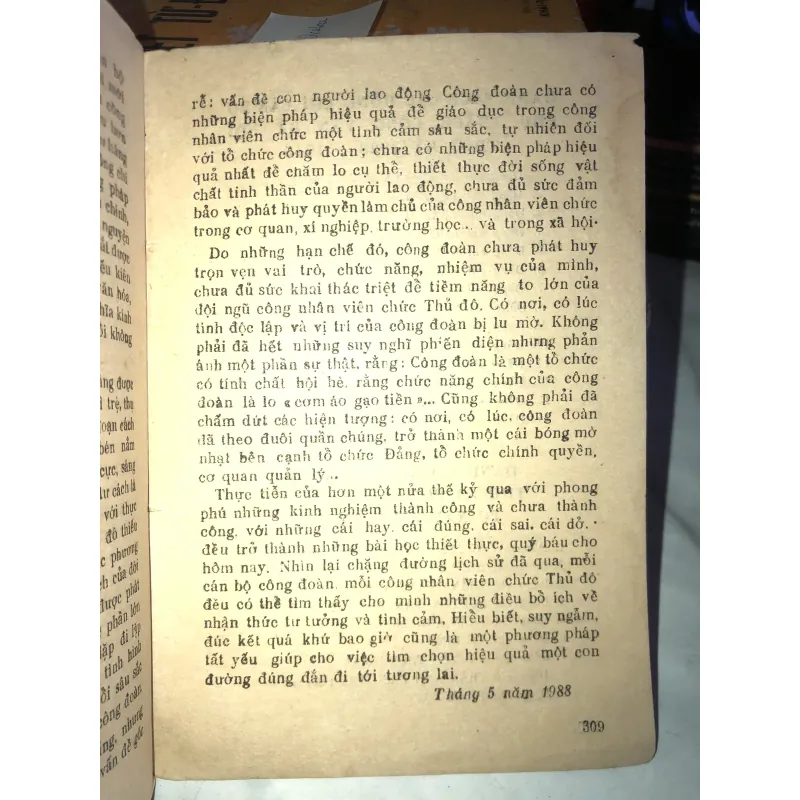 rễ: vấn đề con người lao động Công đoàn chưa có
những biện pháp hiệu quả để giáo dục trong công
nhân viên chức một tình cảm sâu sắc, tự nhiên đối
với tổ chức công đoàn; chưa có những biện pháp hiệu
quả nhất để chăm lo cụ thể, thiết thực đời sống vật
chất tinh thần của người lao động, chưa đủ sức đảm
bảo và phát huy quyền làm chủ của công nhân viên chức
trong cơ quan, xí nghiệp, trường học... và trong xã hội.
Do những hạn chế đó, công đoàn chưa phát huy
trọn vẹn vai trò, chức năng, nhiệm vụ của mình,
chưa đủ sức khai thác triệt để tiềm năng to lớn của
đội ngũ công nhân viên chức Thủ đô. Có nơi, có lúc
tính độc lập và vị trí của công đoàn bị lu mờ. Không
phải đã hết những suy nghĩ phiến diện nhưng phản
ánh một phần sự thật, rằng: Công đoàn là một tổ chức
có tính chất hội hè, rằng chức năng chính của công
đoàn là lo « cơm áo gạo tiền »... Cũng không phải đã
chấm dứt các hiện tượng: có nơi, có lúc, công đoàn
đã theo đuôi quần chúng, trở thành một cái bóng mờ
nhạt bên cạnh tổ chức Đảng, tổ chức chính quyền,
cơ quan quản lý..
Thực tiễn của hơn một nửa thế kỷ qua với phong
phú những kinh nghiệm thành công và chưa thành
công, với những cái hay, cái đúng, cái sai, cái dở,
đều trở thành những bài học thiết thực, quý báu cho
hôm nay. Nhìn lại chặng đường lịch sử đã qua, mỗi
cán bộ công đoàn, mỗi công nhân viên chức Thủ đô
đều có thể tìm thấy cho mình những điều bổ ích về
nhận thức tư tưởng và tình cảm. Hiểu biết, suy ngẫm,
đúc kết quá khứ bao giờ cũng là một phương pháp
tất yếu giúp cho việc tìm chọn hiệu quả một con
đường đúng đắn đi tới tương lai.
Tháng 5 năm 1988
309